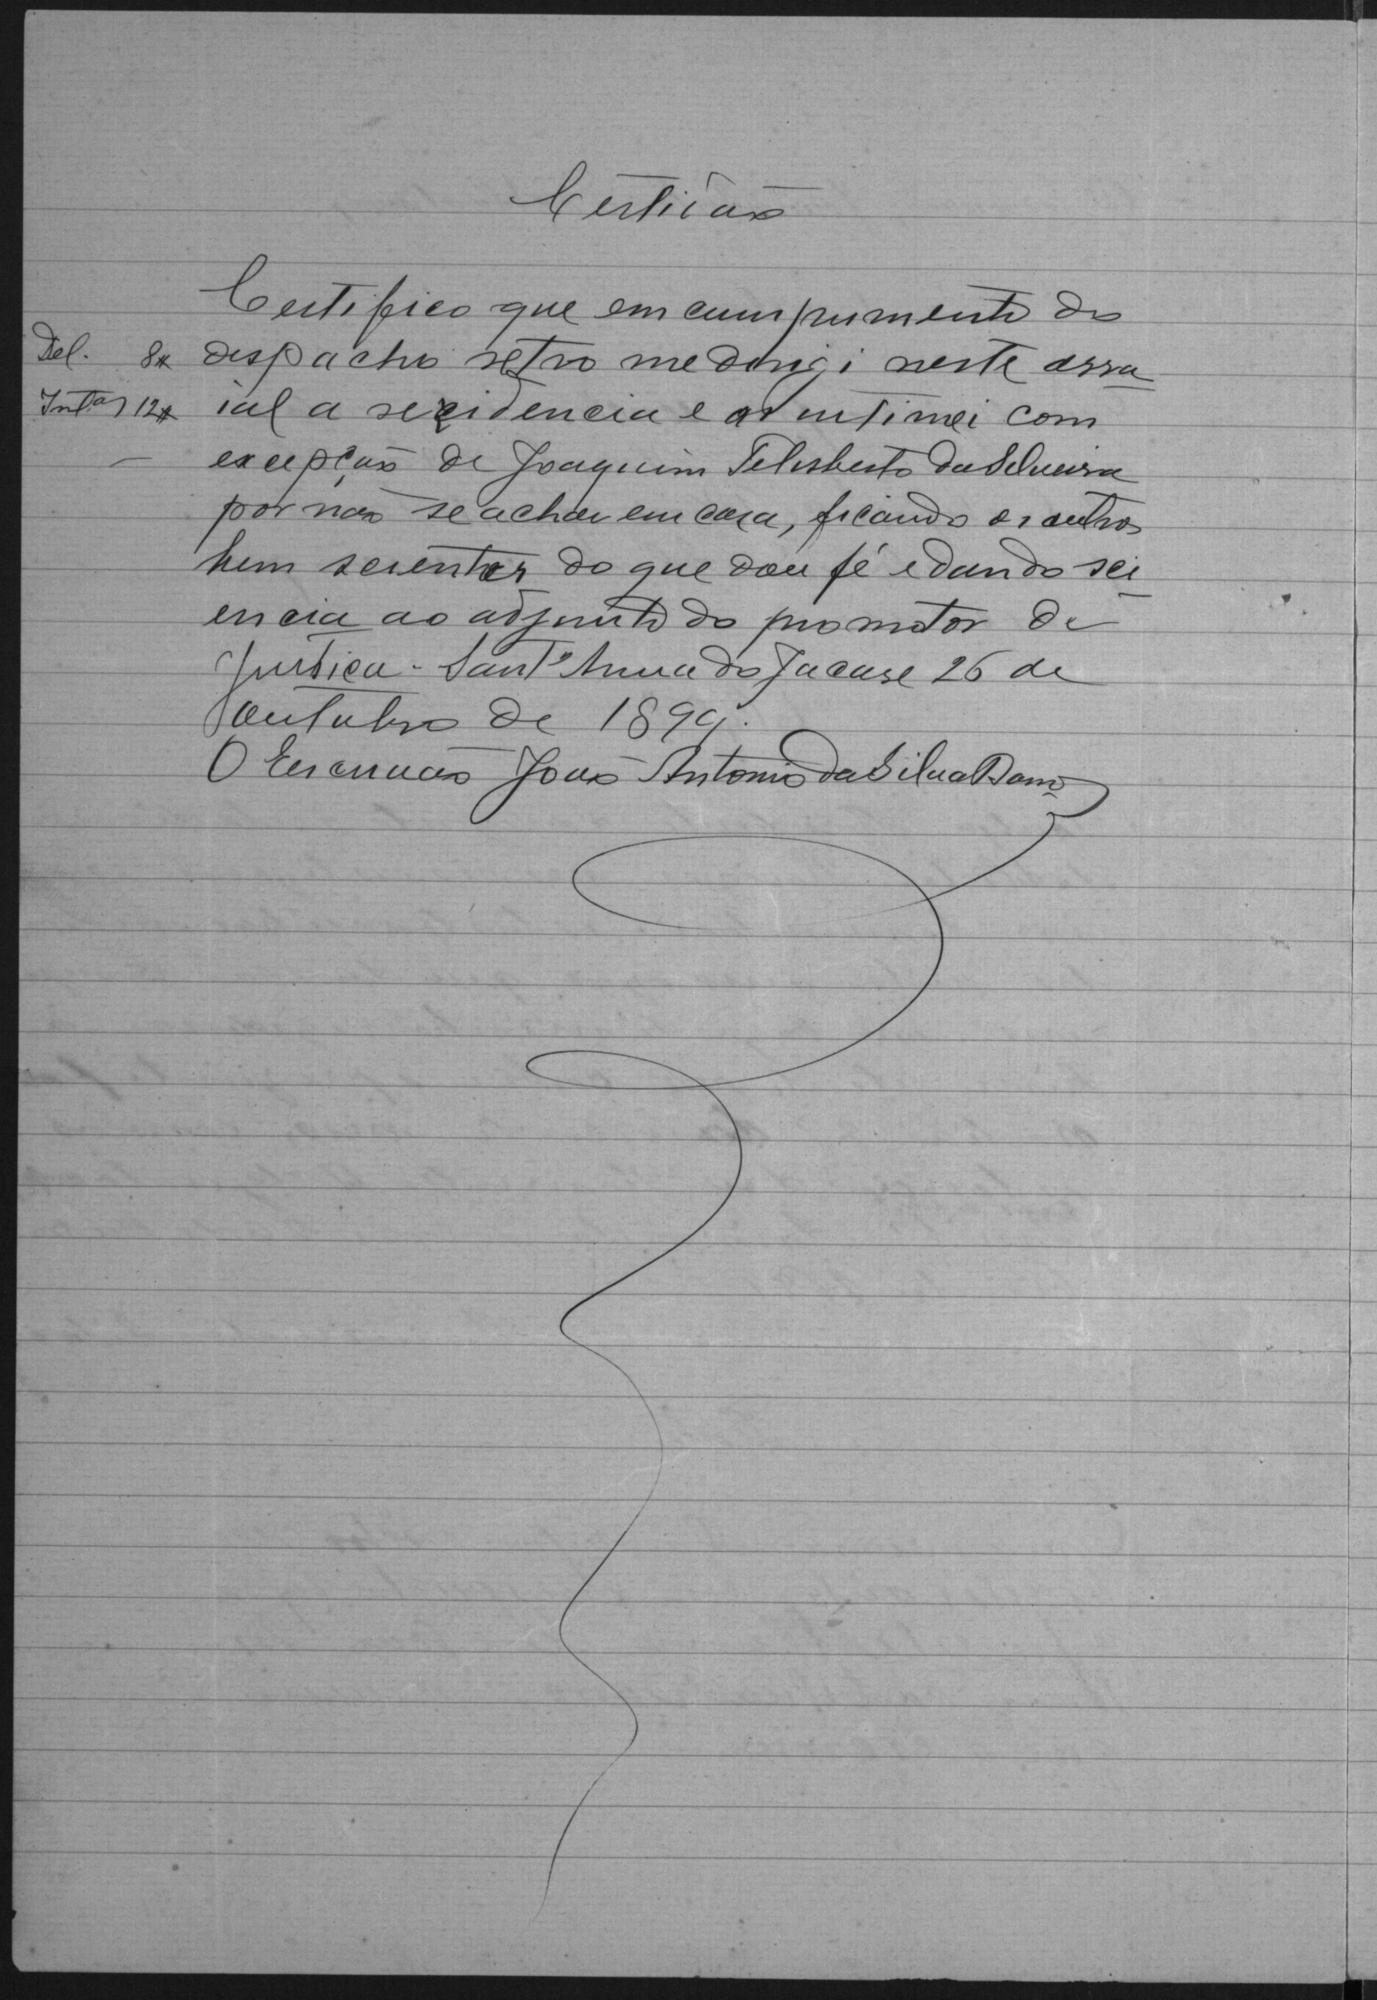 Certião
Certifico que em cumprimento do
Del. 8# despacho retro me dirigi neste arra
Int.as 12# ial a rezidencia e os intimei com
excepção de Joaquim Felisberto da Silveira
por não se achar em caza, ficando os outros
bem scientes do que dou fé e dando sci
encia ao adjunto do promotor de
Justica. Sant'Anna do Jacare 26 de
outubro de 1899.
O Escrivão João Antonio da Silva